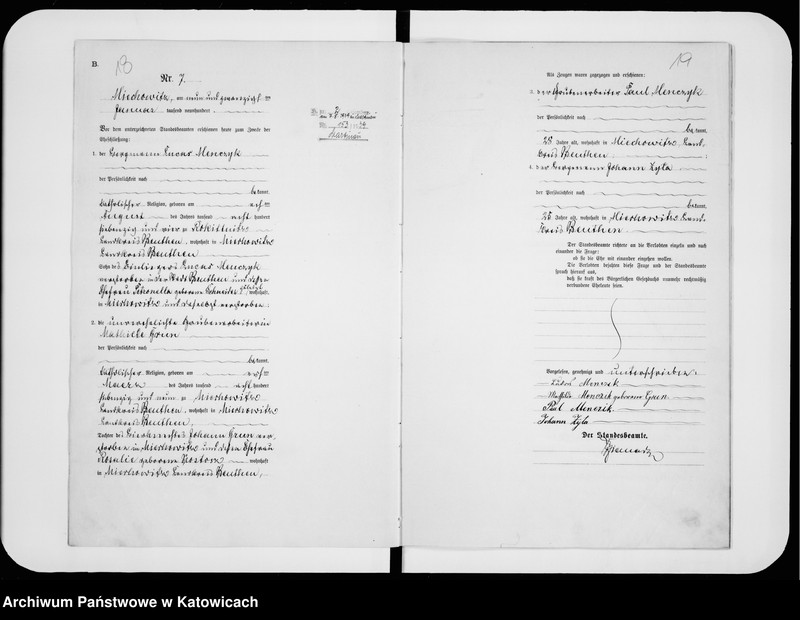 B.
18
Nr. 7.
Miechowitz, am neun und zwanzigsten
Januar tausend neunhundert
Vor dem unterzeichneten Standesbeamten erschienen heute zum Zwecke der
Eheschließung:
1. der Bergmann Lucas Menczyk
der Persönlichkeit nach
bekannt,
katholischer Religion, geboren am
August des Jahres tausend acht hundert
siebenzig und vier zu Rokittnitz
Landkreis Beuthen, wohnhaft in Miechowitz
Landkreis Beuthen
Sohn des Lucas Menczyk
verstorben in Beuthen und
Ehefrau Petronella geborene Schneider wohnhaft
in Miechowitz und verstorben
2. die unverehelichte Grubenarbeiterin
Mathilde Grun
der Persönlichkeit nach
bekannt,
katholischer Religion, geboren am
Maerz des Jahres tausend acht hundert
siebenzig und neun zu Miechowitz
Landkreis Beuthen, wohnhaft in Miechowitz
Landkreis Beuthen,
Tochter des Johann Grun ver
storben in Miechowitz und dessen Ehefrau
Rosalie geborene wohnhaft
in Miechowitz Landkreis Beuthen,
19
Als Zeugen waren zugezogen und erschienen:
3. der Grubenarbeiter Paul Menczyk
der Persönlichkeit nach
bekannt,
Jahre alt, wohnhaft in Miechowitz Land-
kreis Beuthen
4. der Bergmann Johann Zyla
der Persönlichkeit nach
bekannt,
Jahre alt, wohnhaft in Miechowitz Land-
kreis Beuthen
Der Standesbeamte richtete an die Verlobten einzeln und nach
einander die Frage:
ob sie die Ehe mit einander eingehen wollen.
Die Verlobten bejahten diese Frage und der Standesbeamte
sprach hierauf aus,
daß sie kraft des Bürgerlichen Gesetzbuchs nunmehr rechtmäßig
verbundene Eheleute seien.
Vorgelesen, genehmigt und unterschrieben:
Menczik
Mathilde Menczik geborene Grun
Paul Menczik
Johann Zyla
Der Standesbeamte.
Archiwum Państwowe w Katowicach